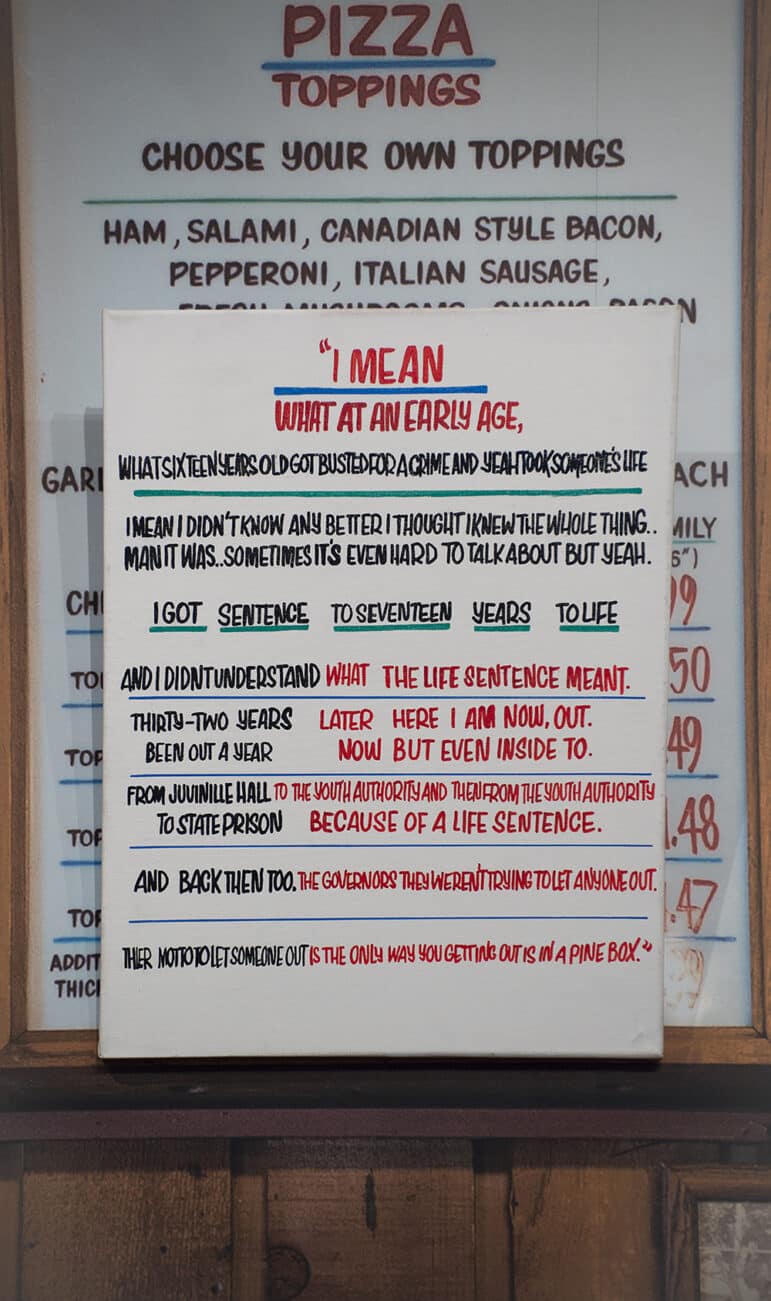 PIZZA
TOPPINGS
CHOOSE YOUR OWN TOPPINGS
HAM, SALAMI, CANADIAN STYLE BACON,
PEPPERONI, ITALIAN SAUSAGE,
FRESH MUSHROOMS, ONIONS, BACON
"I MEAN
WHAT AT AN EARLY AGE,
WHAT SIXTEEN YEARS OLD GOT BUSTED FOR A CRIME AND YEAH TOOK SOMEONE'S LIFE
I MEAN I DIDN'T KNOW ANY BETTER I THOUGHT I KNEW THE WHOLE THING..
MAN IT WAS..SOMETIMES IT'S EVEN HARD TO TALK ABOUT BUT YEAH.
I GOT SENTENCE TO SEVENTEEN YEARS TO LIFE
AND I DIDNT UNDERSTAND WHAT THE LIFE SENTENCE MEANT.
THIRTY-TWO YEARS LATER HERE I AM NOW, OUT.
BEEN OUT A YEAR NOW BUT EVEN INSIDE TO.
FROM JUVINILLE HALL TO THE YOUTH AUTHORITY AND THEN FROM THE YOUTH AUTHORITY
TO STATE PRISON BECAUSE OF A LIFE SENTENCE.
AND BACK THEN TOO. THE GOVERNORS THEY WEREN'T TRYING TO LET ANYONE OUT.
THIER MOTTO TO LET SOMEONE OUT IS THE ONLY WAY YOU GETTING OUT IS IN A PINE BOX."
GARL
ACH
MILY
6")
CHE
99
TOP
.50
TOP
.49
TOP
.48
TOP
.47
ADDIT
THICK